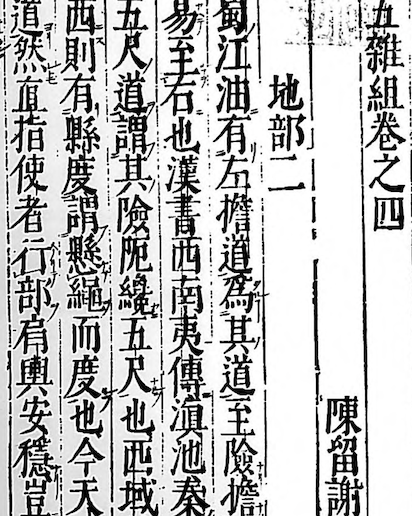 五雜組卷之四
陳留謝
地部二
蜀江油有左擔道爲其道至險擔
易至右也漢書西南夷傳滇池秦
五尺道謂其險阨纔五尺也西域
西則有縣度謂懸繩而度也今天
道然直指使者行部肩輿安穩豈